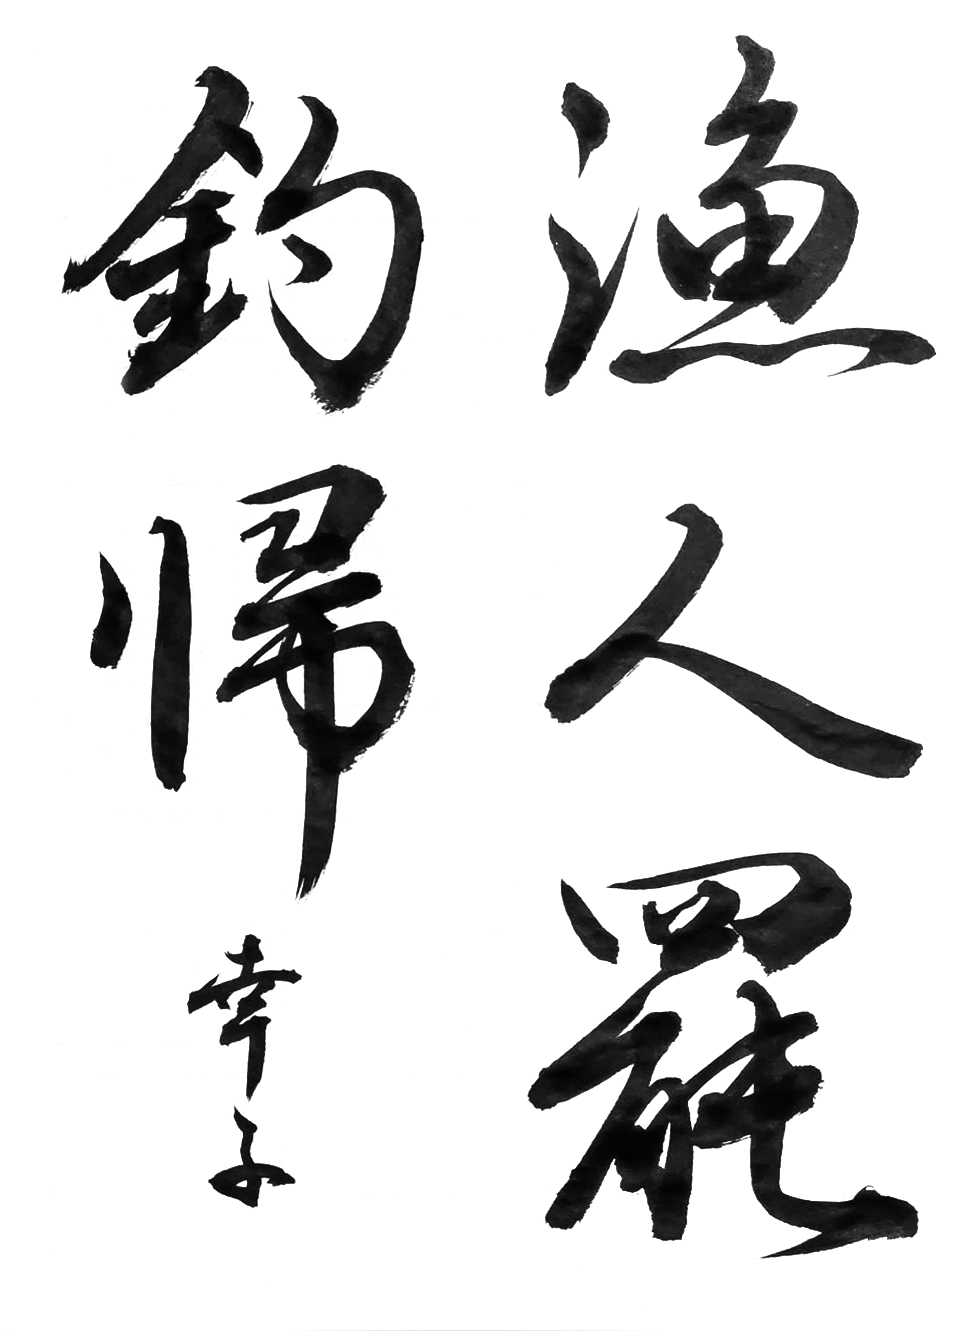 漁人罷
釣帰
幸子